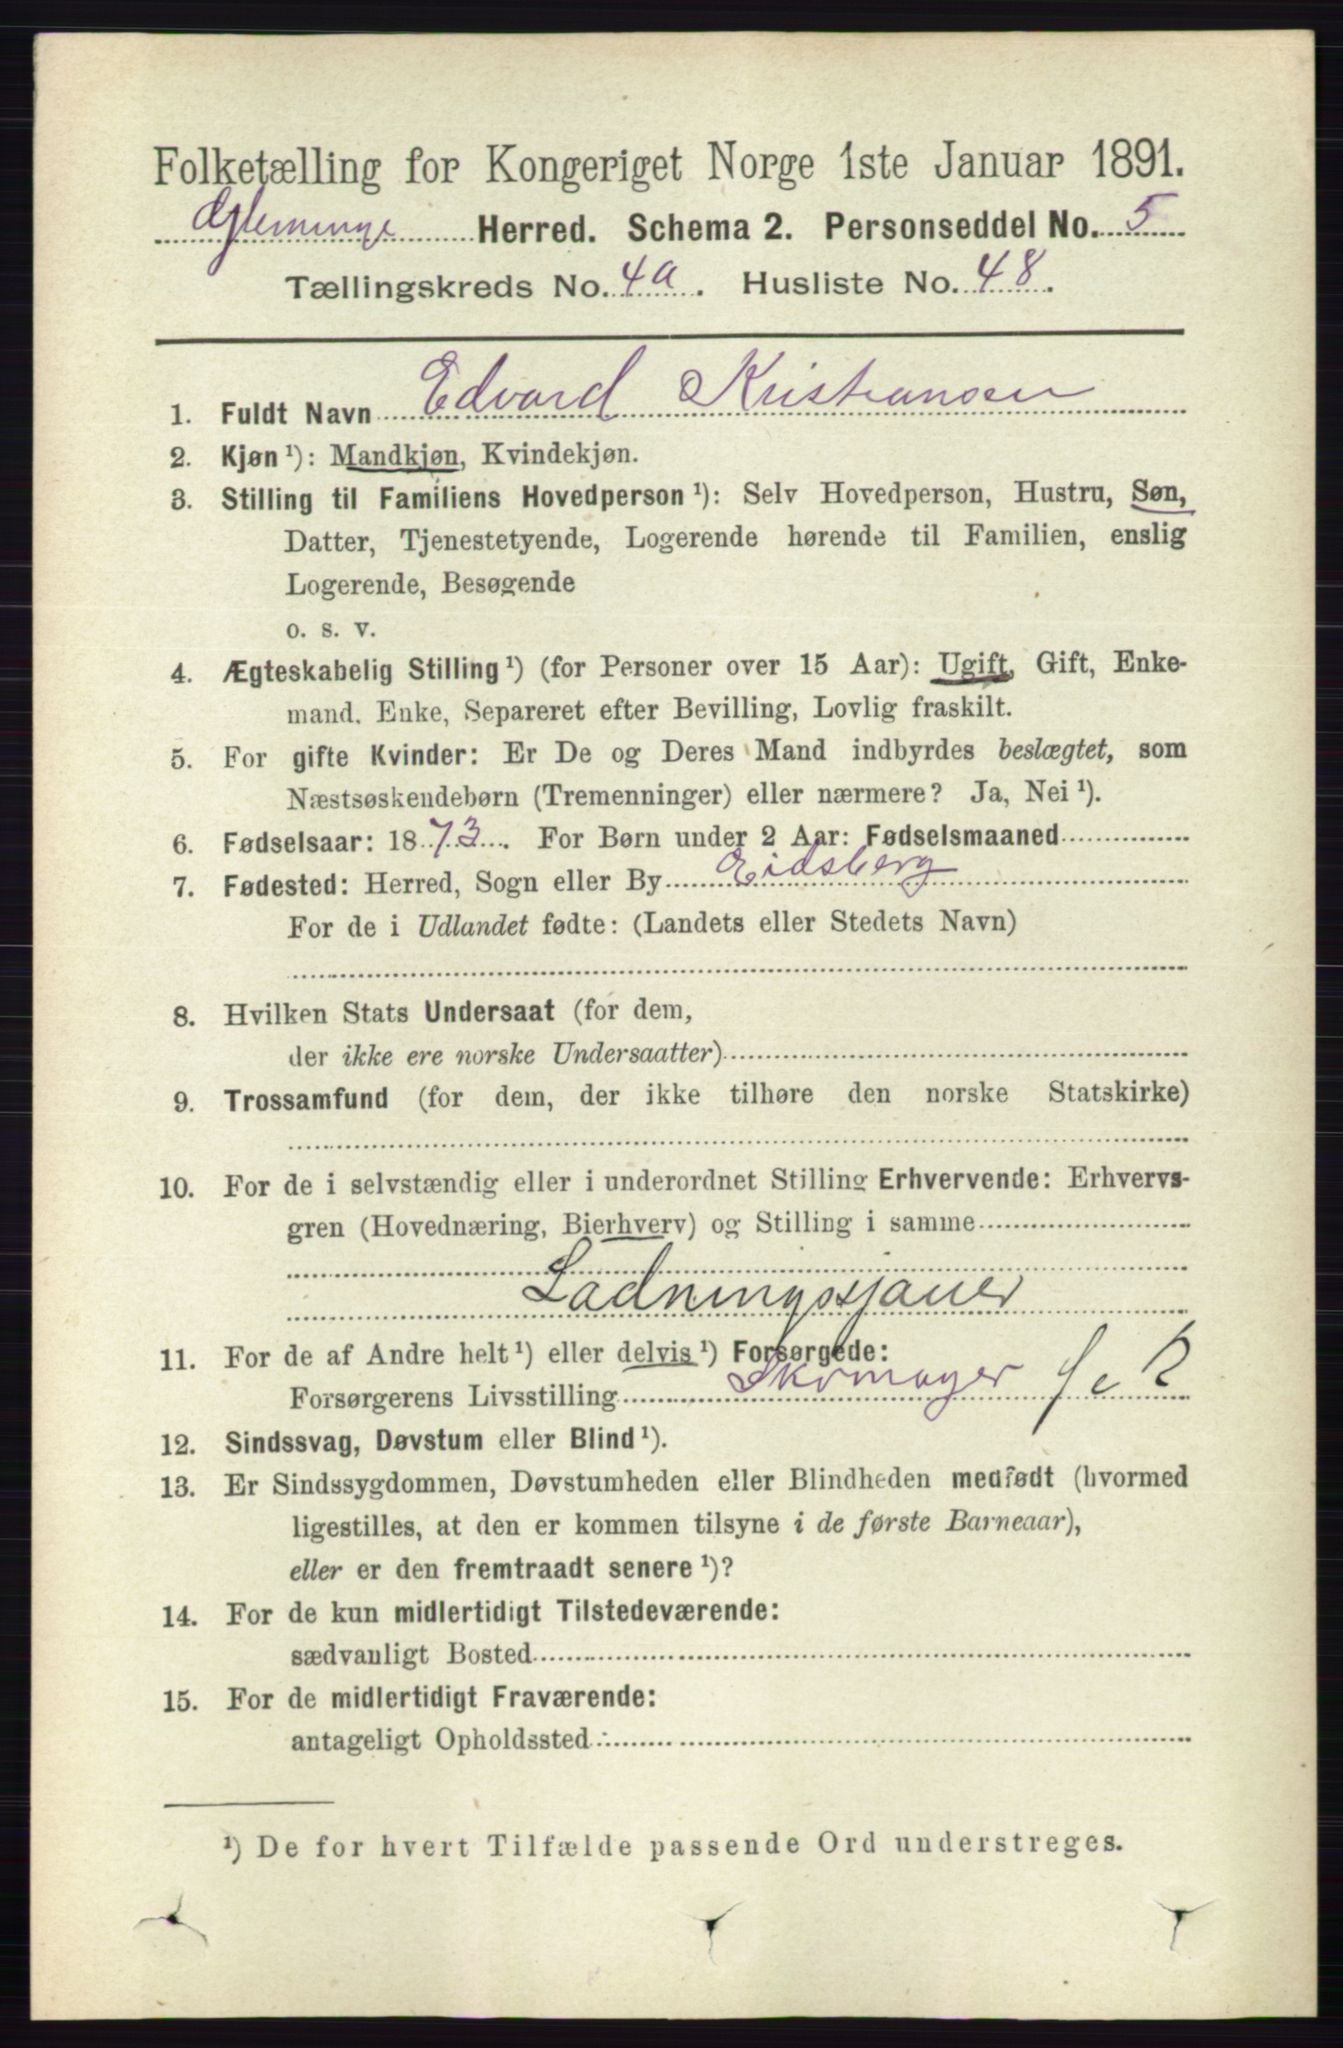 Folketælling for Kongeriget Norge 1ste Januar 1891.
Glemminge Herred. Schema 2. Personseddel No. 5
Tællingskreds No. 4a. Husliste No. 48.
1. Fuldt Navn Edvard Kristiansen
2. Kjøn ¹): Mandkjøn, Kvindekjøn.
3. Stilling til Familiens Hovedperson ¹): Selv Hovedperson, Hustru, Søn,
Datter, Tjenestetyende, Logerende hørende til Familien, enslig
Logerende, Besøgende
o. s. v.
4. Ægteskabelig Stilling ¹) (for Personer over 15 Aar): Ugift, Gift, Enke-
mand, Enke, Separeret efter Bevilling, Lovlig fraskilt.
5. For gifte Kvinder: Er De og Deres Mand indbyrdes beslægtet, som
Næstsøskendebørn (Tremenninger) eller nærmere? Ja, Nei ¹).
6. Fødselsaar: 1873. For Børn under 2 Aar: Fødselsmaaned
7. Fødested: Herred, Sogn eller By Eidsberg
For de i Udlandet fødte: (Landets eller Stedets Navn)
8. Hvilken Stats Undersaat (for dem,
der ikke ere norske Undersaatter)
9. Trossamfund (for dem, der ikke tilhøre den norske Statskirke)
10. For de i selvstændig eller i underordnet Stilling Erhvervende: Erhvervs-
gren (Hovednæring, Bierhverv) og Stilling i samme
Ladningssjauer
11. For de af Andre helt ¹) eller delvis ¹) Forsørgede:
Forsørgerens Livsstilling Skomager
12. Sindssvag, Døvstum eller Blind ¹).
13. Er Sindssygdommen, Døvstumheden eller Blindheden medfødt (hvormed
ligestilles, at den er kommen tilsyne i de første Barneaar),
eller er den fremtraadt senere ¹)?
14. For de kun midlertidigt Tilstedeværende:
sædvanligt Bosted
15. For de midlertidigt Fraværende:
antageligt Opholdssted
¹) De for hvert Tilfælde passende Ord understreges.